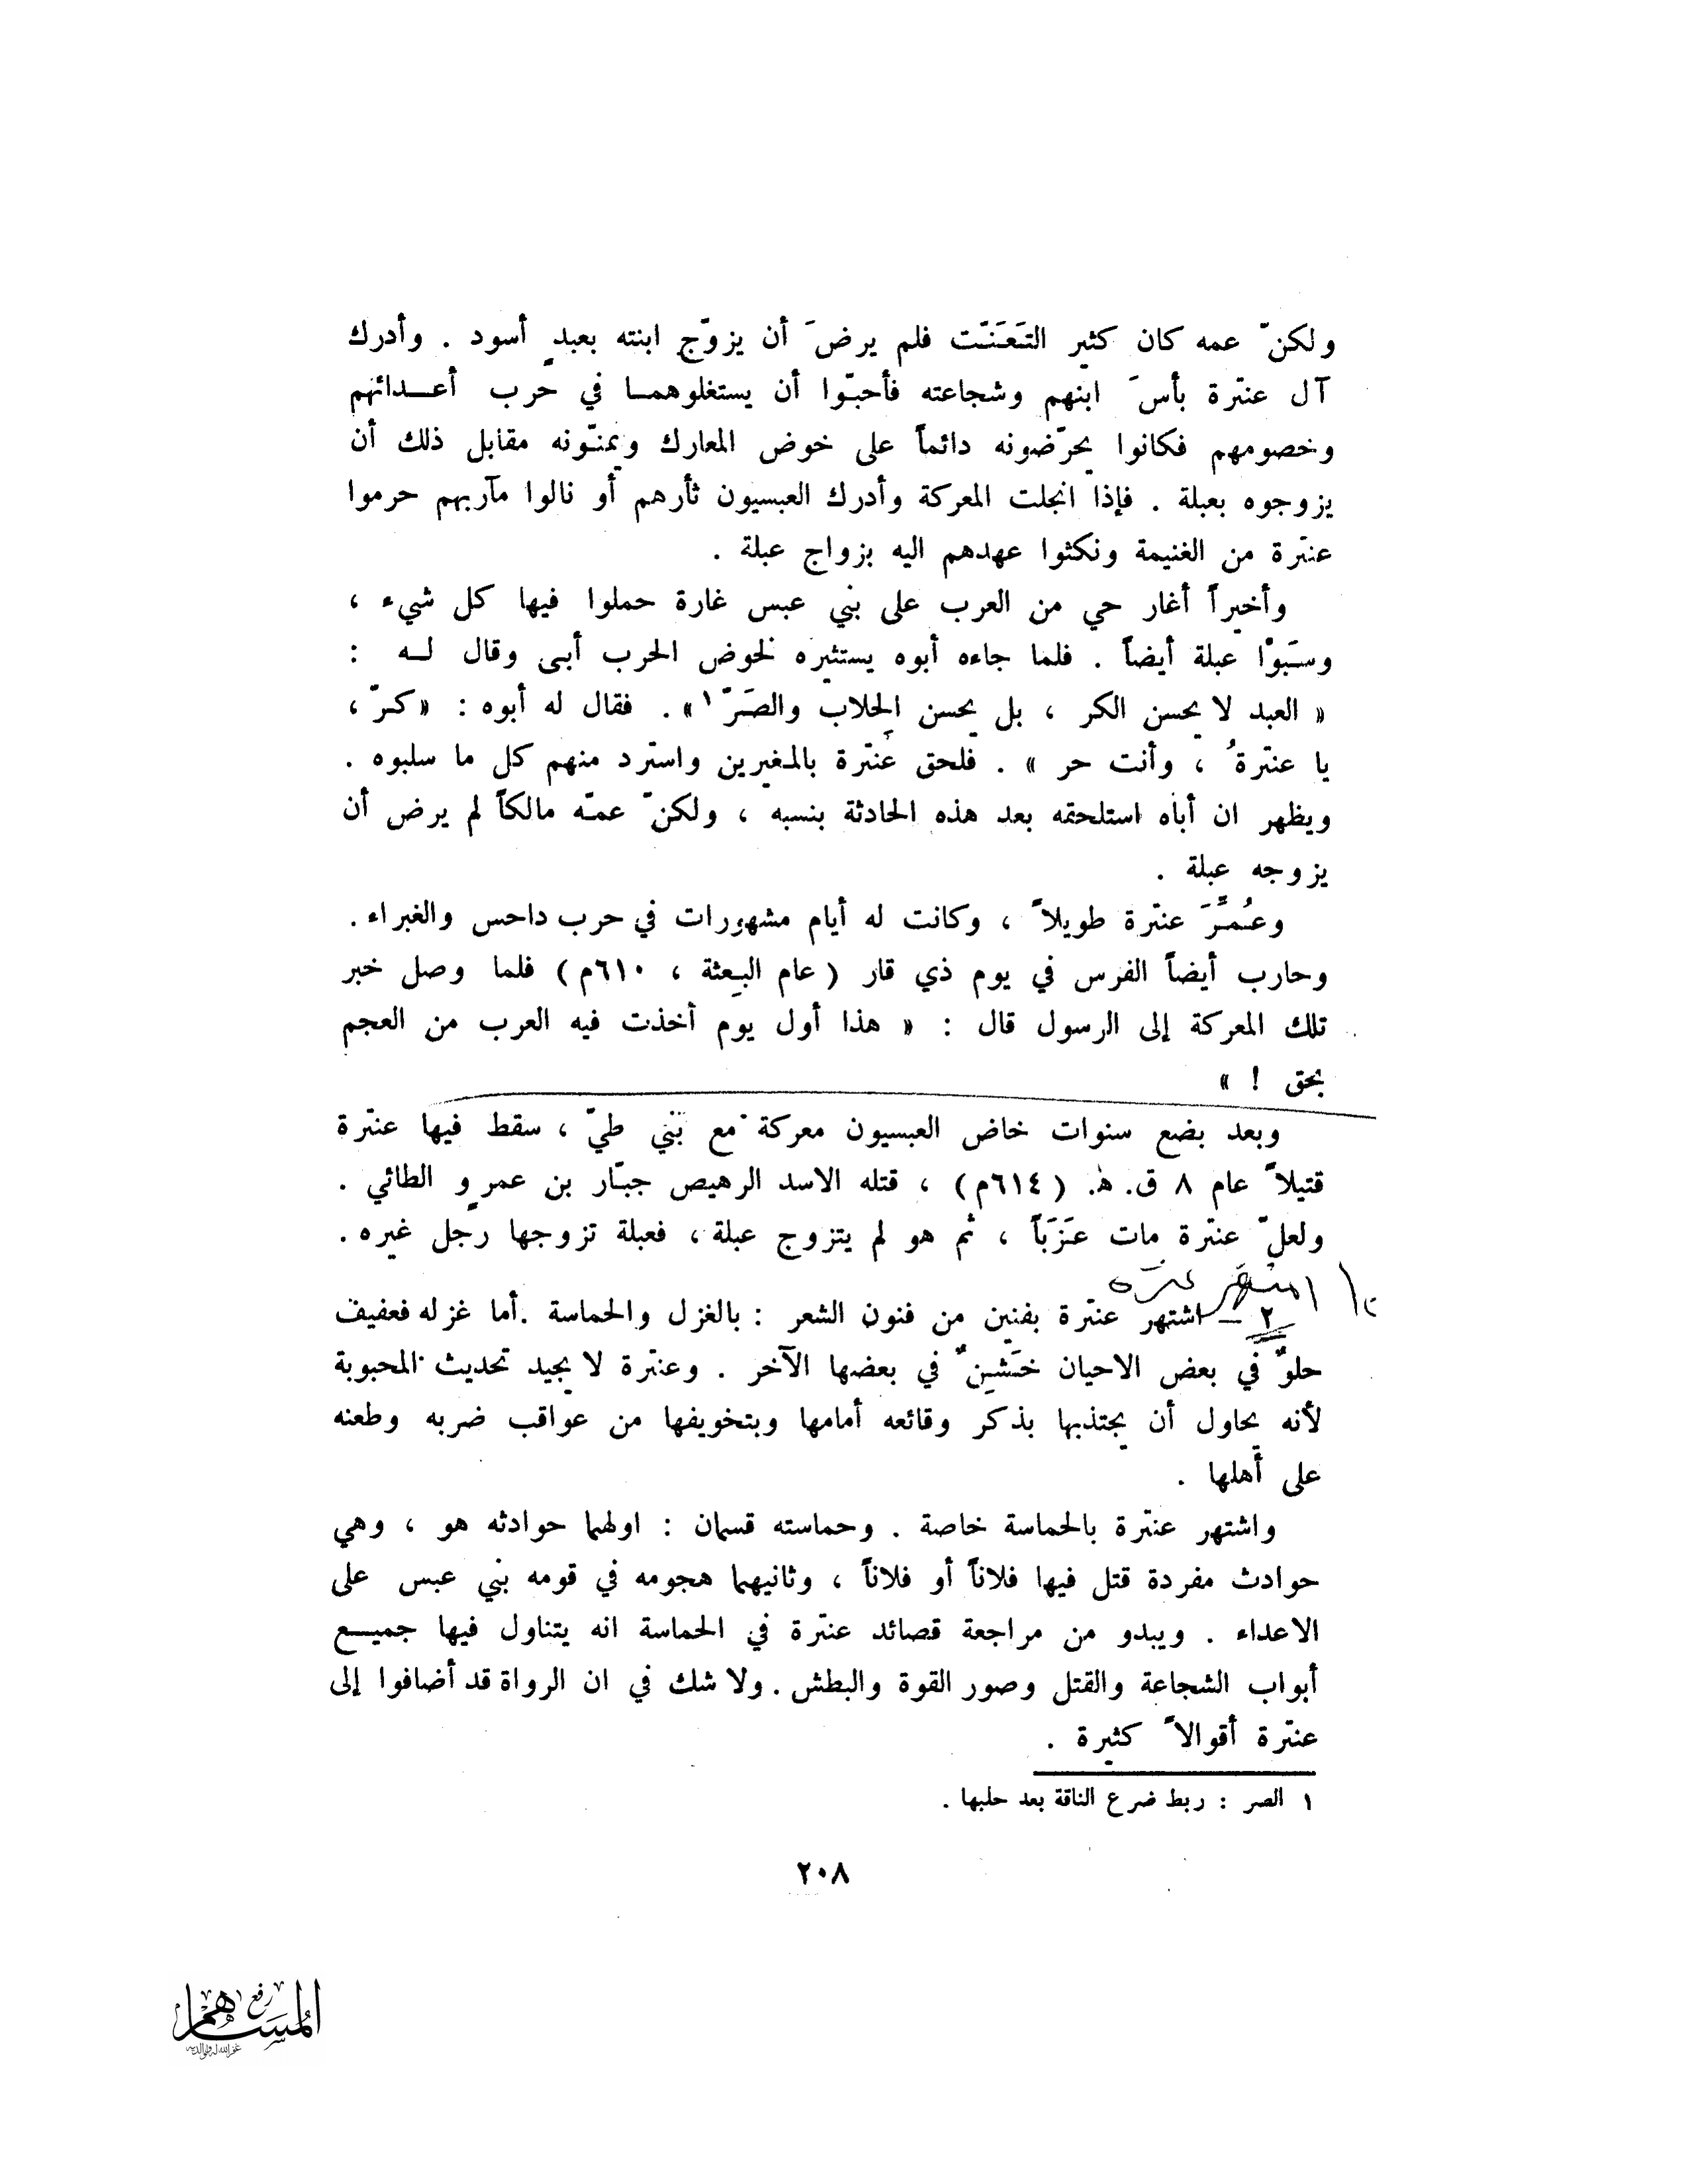 ولكنّ عمه كان كثير التَعَنّت فلم يرضَ أن يزوّج ابنته بعبدٍ أسود . وأدرك
آل عنترة بأسَ ابنهم وشجاعته فأحبّوا أن يستغلوهمـا في حرب أعـدائهم
وخصومهم فكانوا يحرّضونه دائماً على خوض المعارك ويمنّونه مقابل ذلك أن
يزوجوه بعبلة . فإذا انجلت المعركة وأدرك العبسيون ثأرهم أو نالوا مآربهم حرموا
عنترة من الغنيمة ونكثوا عهدهم اليه بزواج عبلة .
وأخيراً أغار حي من العرب على بني عبس غارة حملوا فيها كل شيء ،
وسَبَوْا عبلة أيضاً . فلما جاءه أبوه يستثيره لخوض الحرب أبى وقال لـه :
« العبد لا يحسن الكر ، بل يحسن الحِلاب والصَرّ ١ » . فقال له أبوه : « كرّ ،
يا عنترةُ ، وأنت حر » . فلحق عنترة بالمغيرين واسترد منهم كل ما سلبوه .
ويظهر ان أباه استلحقه بعد هذه الحادثة بنسبه ، ولكنّ عمّه مالكاً لم يرض أن
يزوجه عبلة .
وعُمِّرَ عنترة طويلاً ، وكانت له أيام مشهورات في حرب داحس والغبراء .
وحارب أيضاً الفرس في يوم ذي قار ( عام البعثة ، ٦١٠م ) فلما وصل خبر
تلك المعركة إلى الرسول قال : « هذا أول يوم أخذت فيه العرب من العجم
بحق ! »
وبعد بضع سنوات خاض العبسيون معركة مع بني طيّ ، سقط فيها عنترة
قتيلاً عام ٨ ق. ه. ( ٦١٤م ) ، قتله الاسد الرهيص جبّار بن عمرٍو الطائي .
ولعلّ عنترة مات عَزَباً ، ثم هو لم يتزوج عبلة ، فعبلة تزوجها رجل غيره .
اشتهر عنترة
٢ – اشتهر عنترة بفنين من فنون الشعر : بالغزل والحماسة . أما غزله فعفيف
حلوٌ في بعض الاحيان خَشِنٌ في بعضها الآخر . وعنترة لا يجيد تحديث المحبوبة
لأنه يحاول أن يجتذبها بذكر وقائعه أمامها وبتخويفها من عواقب ضربه وطعنه
على أهلها .
واشتهر عنترة بالحماسة خاصة . وحماسته قسمان : اولهما حوادثه هو ، وهي
حوادث مفردة قتل فيها فلاناً أو فلاناً ، وثانيهما هجومه في قومه بني عبس على
الاعداء . ويبدو من مراجعة قصائد عنترة في الحماسة انه يتناول فيها جميـع
أبواب الشجاعة والقتل وصور القوة والبطش . ولا شك في ان الرواة قد أضافوا إلى
عنترة أقوالاً كثيرة .
١ الصر : ربط ضرع الناقة بعد حلبها .
٢٠٨
رفع
المساهم
غفر الله له ولوالديه